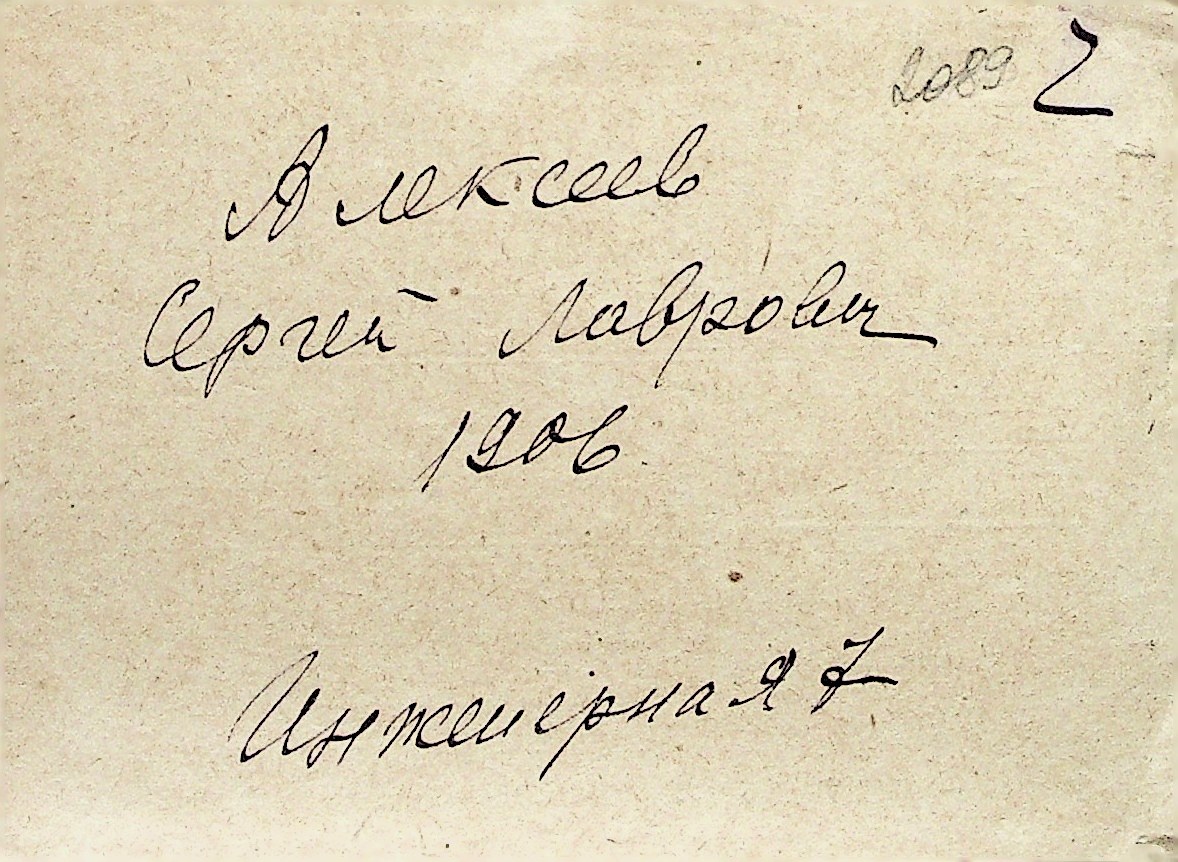 2089 2
Алексеев
Сергей Лаврович
1906
Инженерная 7